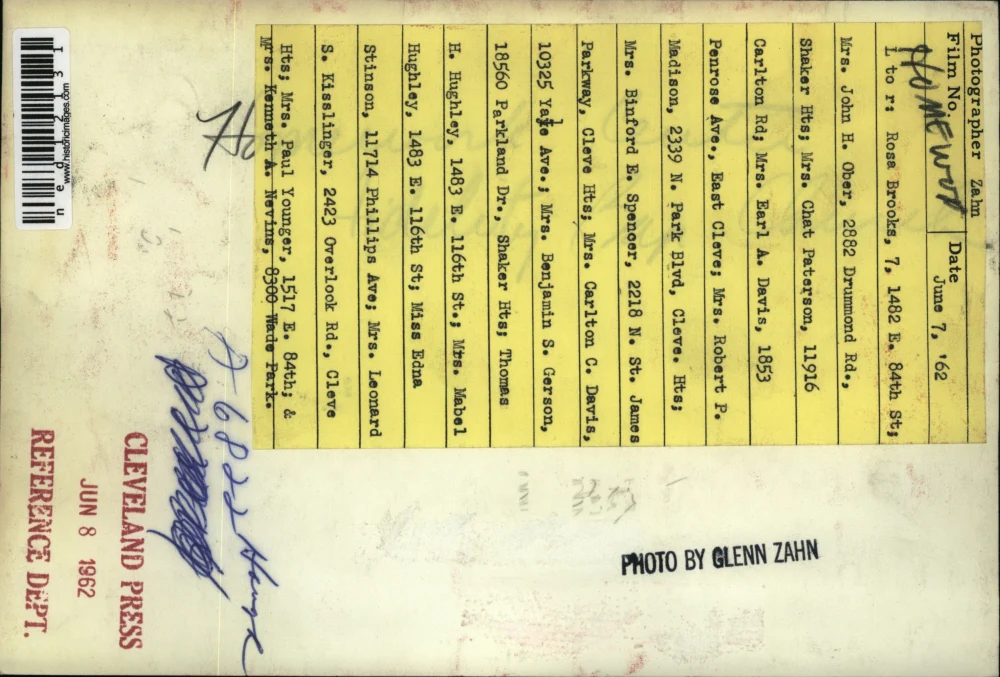 Photographer Zahn
Film No. Date June 7, '62
HOMEWORK
L to r: Rosa Brooks, 7, 1482 E. 84th St;
Mrs. John H. Ober, 2882 Drummond Rd.,
Shaker Hts; Mrs. Chat Paterson, 11916
Carlton Rd; Mrs. Earl A. Davis, 1853
Penrose Ave., East Cleve; Mrs. Robert P.
Madison, 2339 N. Park Blvd, Cleve. Hts;
Mrs. Binford E. Spencer, 2218 N. St. James
Parkway, Cleve Hts; Mrs. Carlton C. Davis,
10325 Yale Ave.; Mrs. Benjamin S. Gerson,
18560 Parkland Dr., Shaker Hts; Thomas
H. Hughley, 1483 E. 116th St.; Mrs. Mabel
Hughley, 1483 E. 116th St; Miss Edna
Stinson, 11714 Phillips Ave; Mrs. Leonard
S. Kisslinger, 2423 Overlook Rd., Cleve
Hts; Mrs. Paul Younger, 1517 E. 84th; &
Mrs. Kenneth A. Nevins, 8300 Wade Park.
Homework Center
PHOTO BY GLENN ZAHN
CLEVELAND PRESS
JUN 8 1962
REFERENCE DEPT.
www.historicimages.com
ned121131